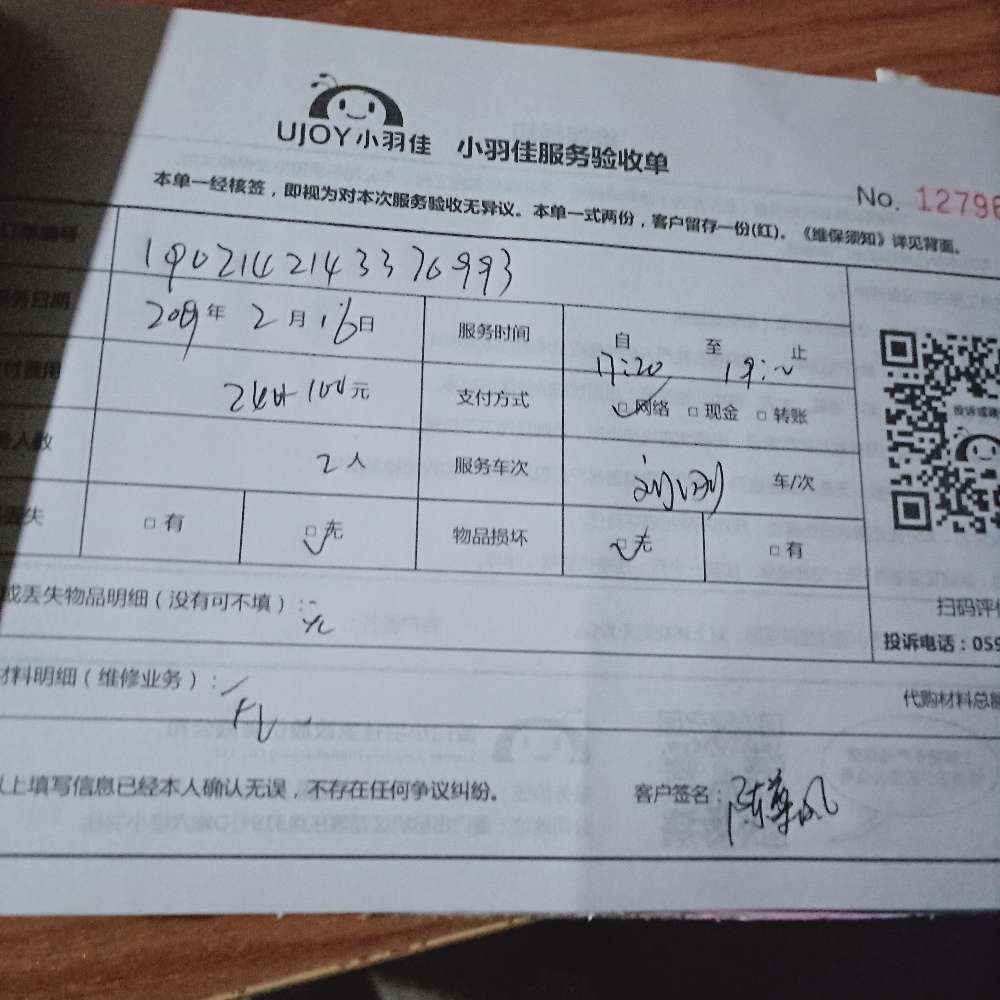 UJOY小羽佳 小羽佳服务验收单
No. 12796
本单一经核签，即视为对本次服务验收无异议。本单一式两份，客户留存一份(红)。《维保须知》详见背面。
订单编号 1902142143376993
服务日期 2019年 2月16日 服务时间 自 17:20 至 19: 止
付费用 元 支付方式 □网络 □现金 □转账
人数 2人 服务车次 车/次
丢失 □有 □无 物品损坏 □无 □有
投诉或
扫码评价
或丢失物品明细（没有可不填）：无
投诉电话：059
材料明细（维修业务）：无
代购材料总额
以上填写信息已经本人确认无误，不存在任何争议纠纷。 客户签名：陈 凤